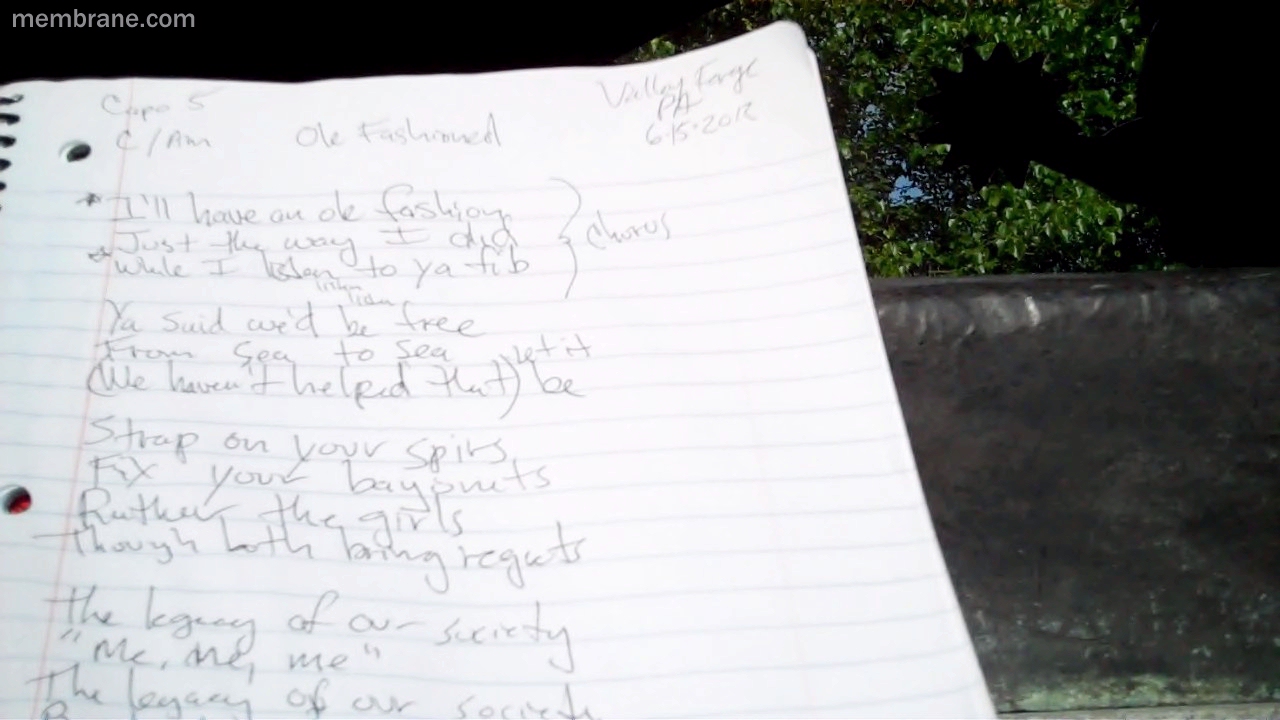 membrane.com
Capo 5
C/Am
Ole Fashioned
Valley Forge
PA
6.15.2012
* I'll have an ole fashion
Just the way I did
* While I listen to ya fib
} Chorus
listen
listen
Ya said we'd be free
From sea to sea
(We haven't helped that) let it be
Strap on your
Fix your bayonets
Rather the girls
Though both bring regrets
The legacy of our society
"Me, me, me"
The legacy of our society